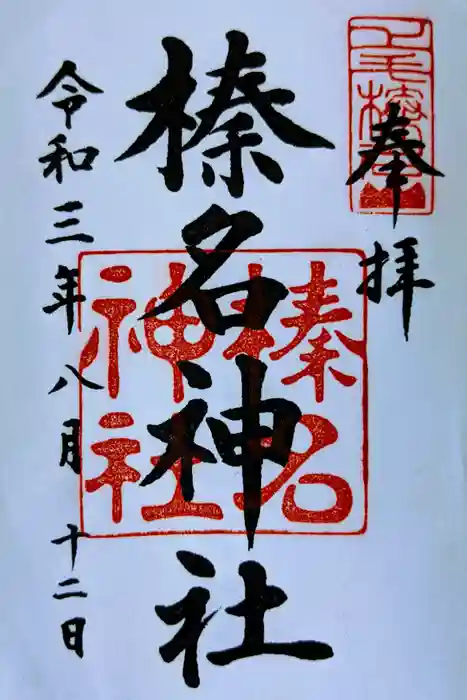 奉拝
榛名神社
令和三年八月十二日
榛名
神社